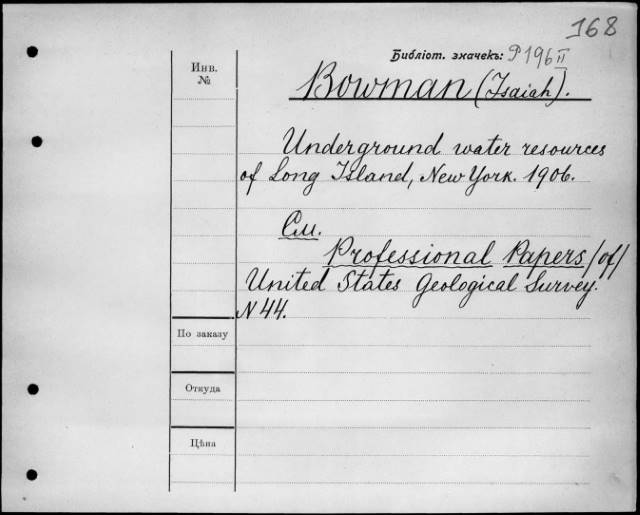 168
Библіот. значекъ: P 196 II
Инв.
№
Bowman (Isaiah).
Underground water resources
of Long Island, New York. 1906.
См.
Professional Papers /of/
United States Geological Survey.
N 44.
По заказу
Откуда
Цѣна